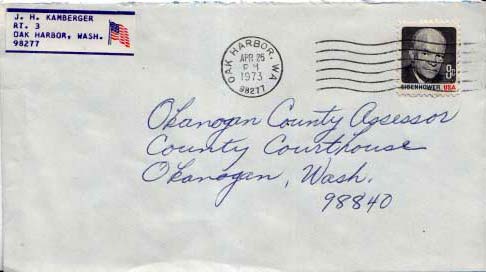 J. H. KAMBERGER
RT. 3
OAK HARBOR, WASH.
98277
OAK HARBOR, WA
APR 25
PM
1973
98277
8¢
EISENHOWER USA
Okanogan County Assessor
County Courthouse
Okanogan, Wash.
98840